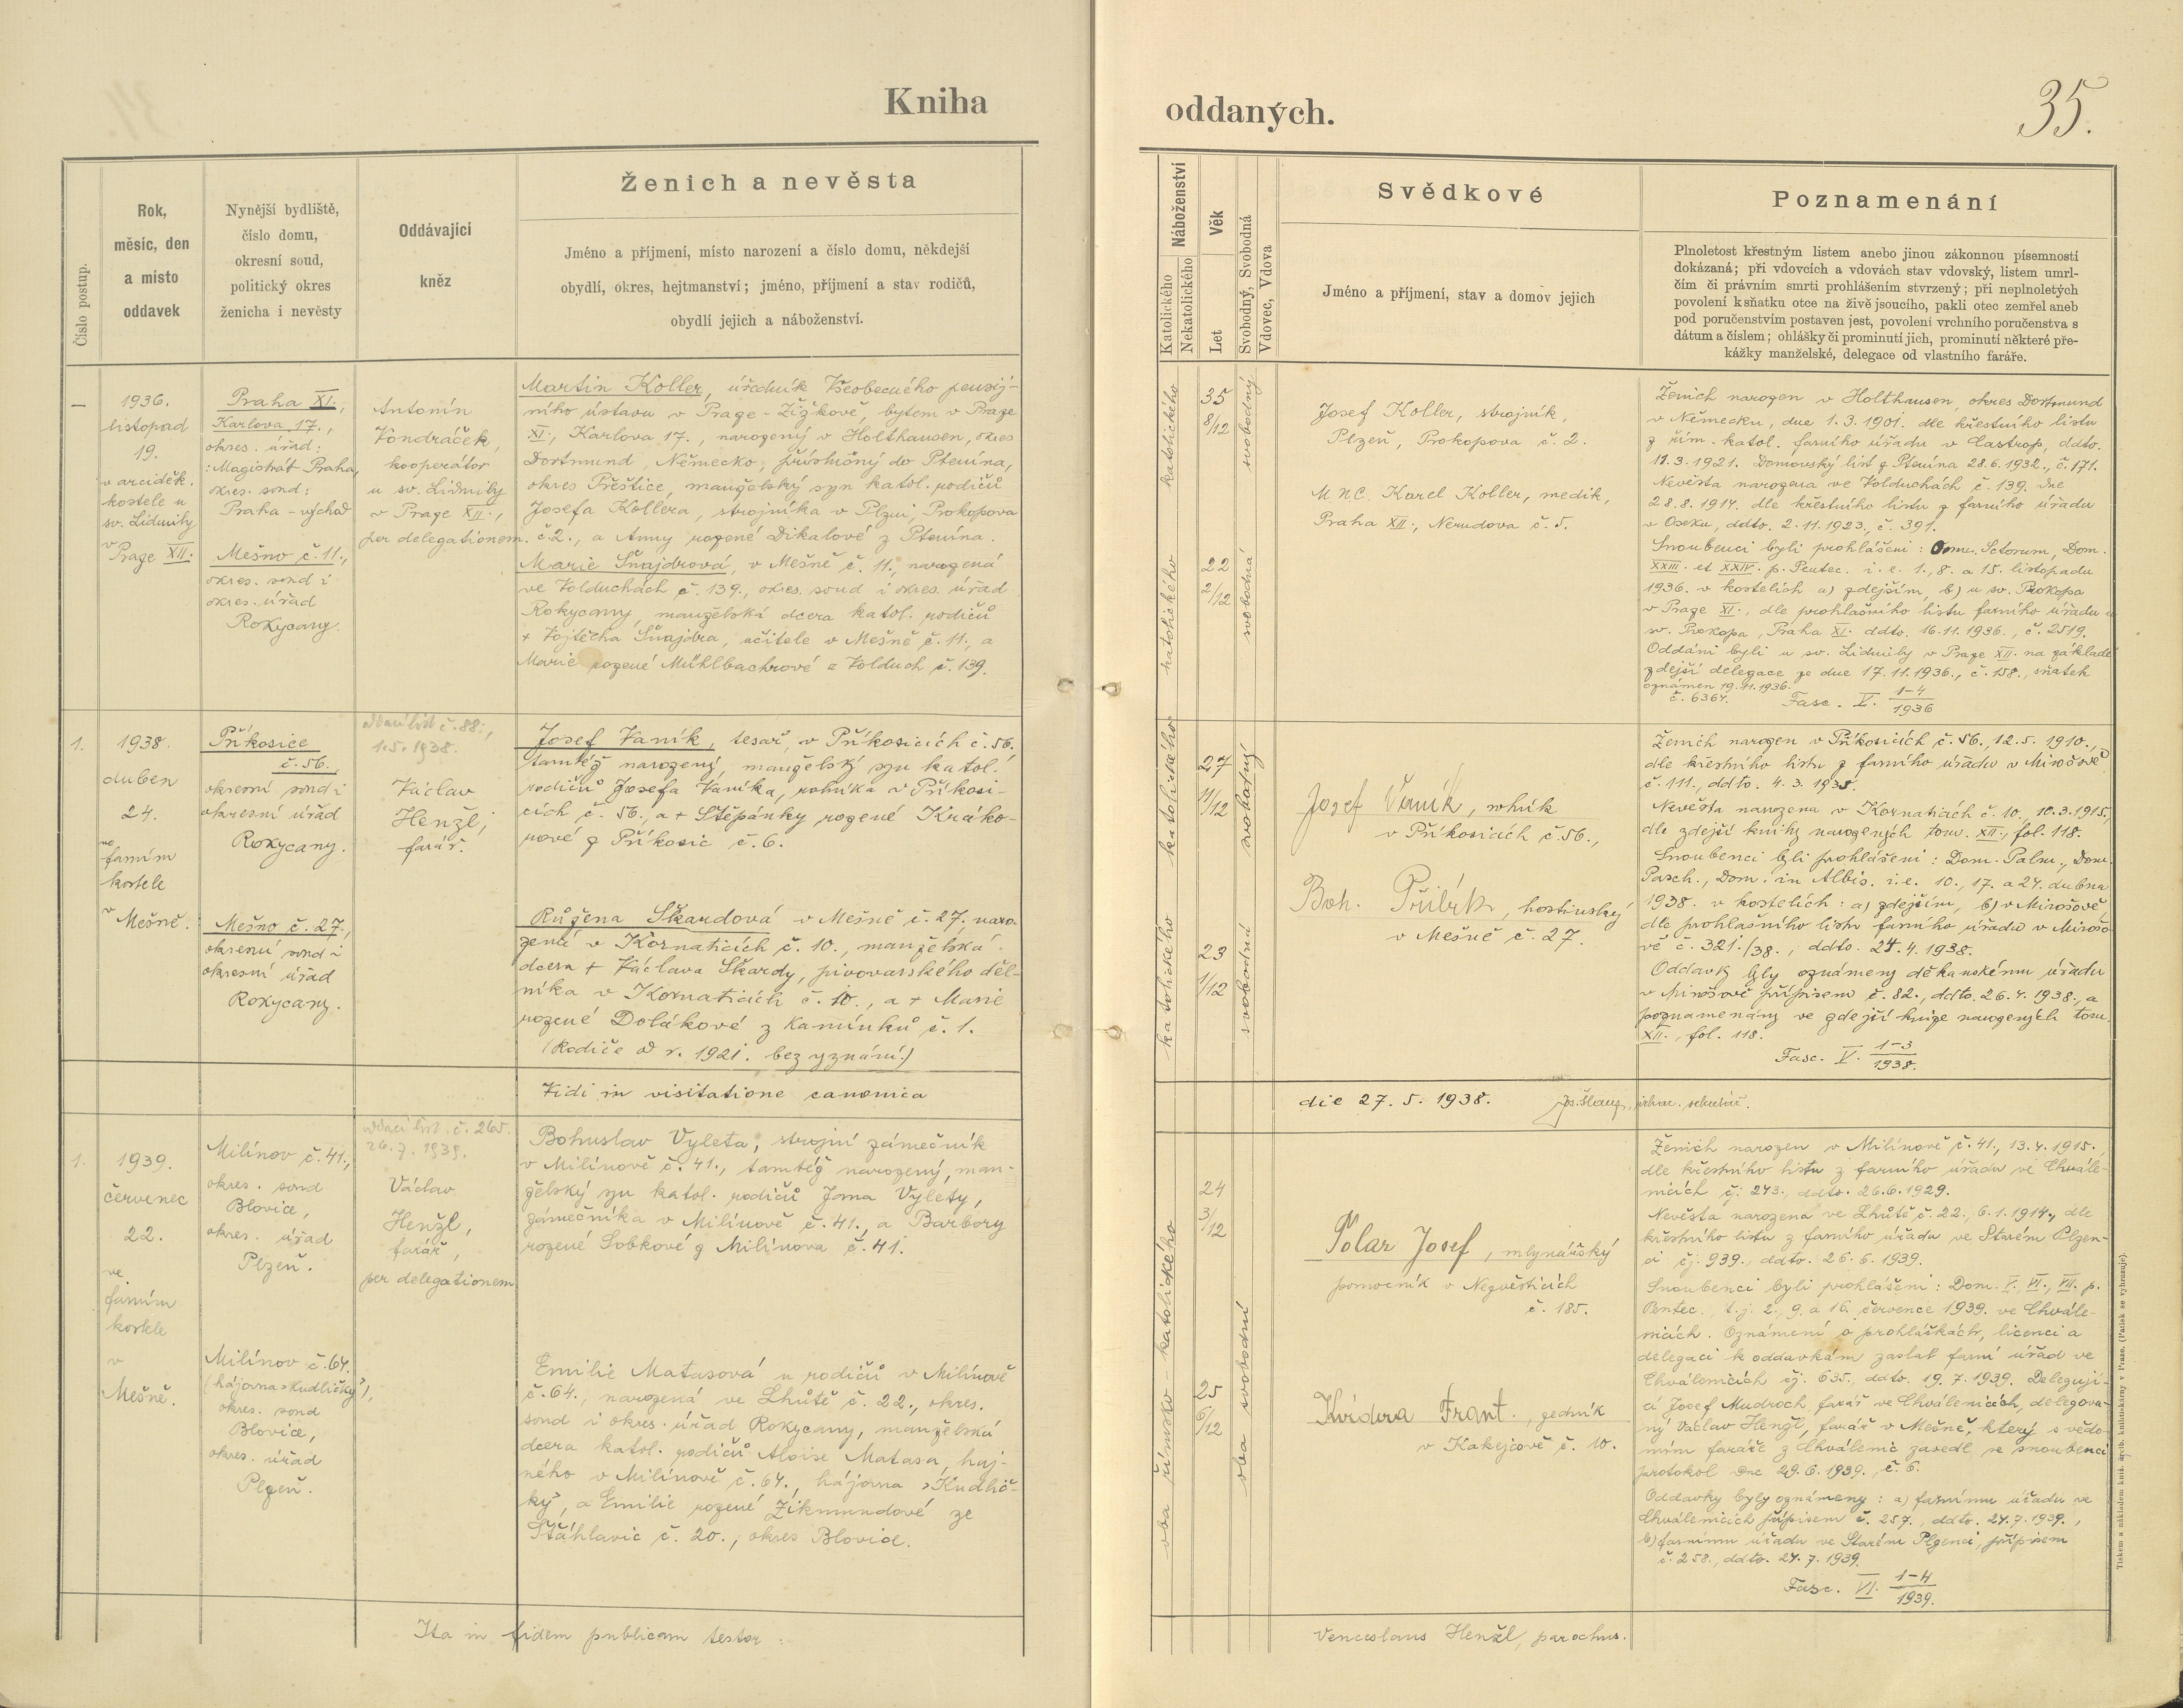 Kniha
oddaných.
35.
Číslo postup.
Rok,
měsíc, den
a místo
oddavek
Nynější bydliště,
číslo domu,
okresní soud,
politický okres
ženicha i nevěsty
Oddávající
kněz
Ženich a nevěsta
Jméno a příjmení, místo narození a číslo domu, někdejší
obydlí, okres, hejtmanství; jméno, příjmení a stav rodičů,
obydlí jejich a náboženství.
Náboženství
Katolického
Nekatolického
Věk
Let
Svobodný, Svobodná
Vdovec, Vdova
Svědkové
Jméno a příjmení, stav a domov jejich
Poznamenání
Plnoletost křestným listem anebo jinou zákonnou písemností
dokázaná; při vdovcích a vdovách stav vdovský, listem umrl-
čím či právním smrti prohlášením stvrzený; při neplnoletých
povolení k sňatku otce na živě jsoucího, pakli otec zemřel aneb
pod poručenstvím postaven jest, povolení vrchního poručenstva s
dátum a číslem; ohlášky či prominutí jich, prominutí některé pře-
kážky manželské, delegace od vlastního faráře.
1
1936.
listopad
19.
v arciděk.
kostele u
sv. Lidmily
v
Praze XII.
Praha XI.,
Karlova 17.,
okres. úřad:
: Magistrát Praha,
okres. soud:
Praha - východ
Mešno č. 11.,
okres. soud i
okres. úřad
Rokycany.
Antonín
Vondráček,
kooperátor
u sv. Lidmily
v Praze XII.,
per delegationem.
Martin Koller, úředník Všeobecného pensij-
ního ústavu v Praze - Žižkově, bytem v Praze
XI., Karlova 17., narozený v Holthausen, okres
Dortmund, Německo, příslušný do Ptenína,
okres Přeštice, manželský syn katol. rodičů
Josefa Kollera, strojníka v Plzni, Prokopova
č. 2., a Anny rozené Dikalové z Ptenína.
Marie Šnajdrová, v Mešně č. 11., narozená
ve Volduchách č. 139., okres. soud i okres. úřad
Rokycany, manželská dcera katol. rodičů
+ Vojtěcha Šnajdra, učitele v Mešně č. 11., a
Marie rozené Mühlbachrové z Volduch č. 139.
katolického
katolického
35
8/12
22
2/12
svobodný
svobodná
Josef Koller, strojník,
Plzeň, Prokopova č. 2.
MNC. Karel Koller, medik,
Praha XII., Nerudova č. 5.
Ženich narozen v Holthausen, okres Dortmund
v Německu, dne 1.3.1901. dle křestního listu
z řím.-katol. farního úřadu v Castrop, ddto.
11.3.1921. Domovský list z Ptenína 28.6.1932., č. 171.
Nevěsta narozena ve Volduchách č. 139. dne
28.8.1914. dle křestního listu z farního úřadu
v Oseku, ddto. 2.11.1923., č. 391.
Snoubenci byli prohlášeni: Omn. Sctorum, Dom.
XXIII. et XXIV. p. Pentec. i. e. 1., 8. a 15. listopadu
1936. v kostelích a) zdejším, b) u sv. Prokopa
v Praze XI., dle prohlašního listu farního úřadu u
sv. Prokopa, Praha XI. ddto. 16.11.1936., č. 2519.
Oddáni byli u sv. Lidmily v Praze XII. na základě
zdejší delegace ze dne 17.11.1936., č. 158., sňatek
oznámen 19.11.1936.
č. 6364.
Fasc. V. 1-4/1936
1.
1938.
duben
24.
ve
farním
kostele
v
Mešně.
Příkosice
č. 56.,
okresní soud i
okresní úřad
Rokycany.
Mešno č. 27.,
okresní soud i
okresní úřad
Rokycany.
oddací list č. 88.,
1.5.1938.
Václav
Henžl,
farář.
Josef Vaník, tesař, v Příkosicích č. 56.
tamtéž narozený, manželský syn katol.
rodičů Josefa Vaníka, rolníka v Příkosi-
cích č. 56., a + Štěpánky rozené Kráko-
rové z Příkosic č. 6.
Růžena Škardová v Mešně č. 27. naro-
zená v Kornaticích č. 10., manželská
dcera + Václava Škardy, pivovarského děl-
níka v Kornaticích č. 10., a + Marie
rozené Dolákové z Kamínků č. 1.
(Rodiče od r. 1921. bez vyznání.)
katolického
katolického
27
11/12
23
1/12
svobodný
svobodná
Josef Vaník, rolník
v Příkosicích č. 56.,
Boh. Přibík, hostinský
v Mešně č. 27.
Ženich narozen v Příkosicích č. 56., 12.5.1910.,
dle křestního listu z farního úřadu v Mirošově
č. 111., ddto. 4.3.1938.
Nevěsta narozena v Kornaticích č. 10., 10.3.1915.,
dle zdejší knihy narozených tom. XII., fol. 118.
Snoubenci byli prohlášeni: Dom. Palm., Dom.
Pasch., Dom. in Albis. i. e. 10., 17. a 24. dubna
1938. v kostelích: a) zdejším, b) v Mirošově,
dle prohlašního listu farního úřadu v Mirošo-
vě č. 321./38., ddto. 24.4.1938.
Oddavky byly oznámeny děkanskému úřadu
v Mirošově přípisem č. 82., ddto. 26.4.1938., a
poznamenány ve zdejší knize narozených tom.
XII., fol. 118.
Fasc. V. 1-3/1938.
Vidi in visitatione canonica
die 27. 5. 1938.
1.
1939.
červenec
22.
ve
farním
kostele
v
Mešně.
Milínov č. 41.,
okres. soud
Blovice,
okres. úřad
Plzeň.
Milínov č. 64.
(hájovna »Kudličky«),
okres. soud
Blovice,
okres. úřad
Plzeň.
oddací list. č. 265.
26.7.1939.
Václav
Henžl,
farář,
per delegationem
Bohuslav Vyleta, strojní zámečník
v Milínově č. 41., tamtéž narozený, man-
želský syn katol. rodičů Jana Vylety,
zámečníka v Milínově č. 41., a Barbory
rozené Sobkové z Milínova č. 41.
Emilie Matasová u rodičů v Milínově
č. 64., narozená ve Lhůtě č. 22., okres.
soud i okres. úřad Rokycany, manželská
dcera katol. rodičů Aloise Matasa, haj-
ného v Milínově č. 64., hájovna »Kudlič-
ky«, a Emilie rozené Zikmundové ze
Šťáhlavic č. 20., okres Blovice.
oba římsko-katolického
24
3/12
25
6/12
oba svobodní
Polar Josef, mlynářský
pomocník v Nezvěsticích
č. 185.
Kvídera Frant., zedník
v Kakejcově č. 10.
Ženich narozen v Milínově č. 41., 13.4.1915.,
dle křestního listu z farního úřadu ve Chvále-
nicích čj. 243., ddto. 26.6.1929.
Nevěsta narozena ve Lhůtě č. 22., 6.1.1914., dle
křestního listu z farního úřadu ve Starém Plzen-
ci čj. 939., ddto. 26.6.1939.
Snoubenci byli prohlášeni: Dom. V., VI., VII. p.
Pentec., t. j. 2., 9. a 16. července 1939. ve Chvále-
nicích. Oznámení o prohláškách, licenci a
delegaci k oddavkám zaslal farní úřad ve
Chválenicích čj. 635., ddto. 19.7.1939. Delegují-
cí Josef Mudroch, farář ve Chválenicích, delegova-
ný Václav Henžl, farář v Mešně, který s vědo-
mím faráře z Chválenic zavedl se snoubenci
protokol dne 29.6.1939., č. 6.
Oddavky byly oznámeny: a) farnímu úřadu ve
Chválenicích přípisem č. 257., ddto. 24.7.1939.,
b) farnímu úřadu ve Starém Plzenci, přípisem
č. 258., ddto. 24.7.1939.
Fasc. VI. 1-4/1939.
Ita in fidem publicam testor:
Venceslaus Henžl, parochus.
Tiskem a nákladem knih. arcib. knihtiskárny v Praze. (Patisk se vyhrazuje).